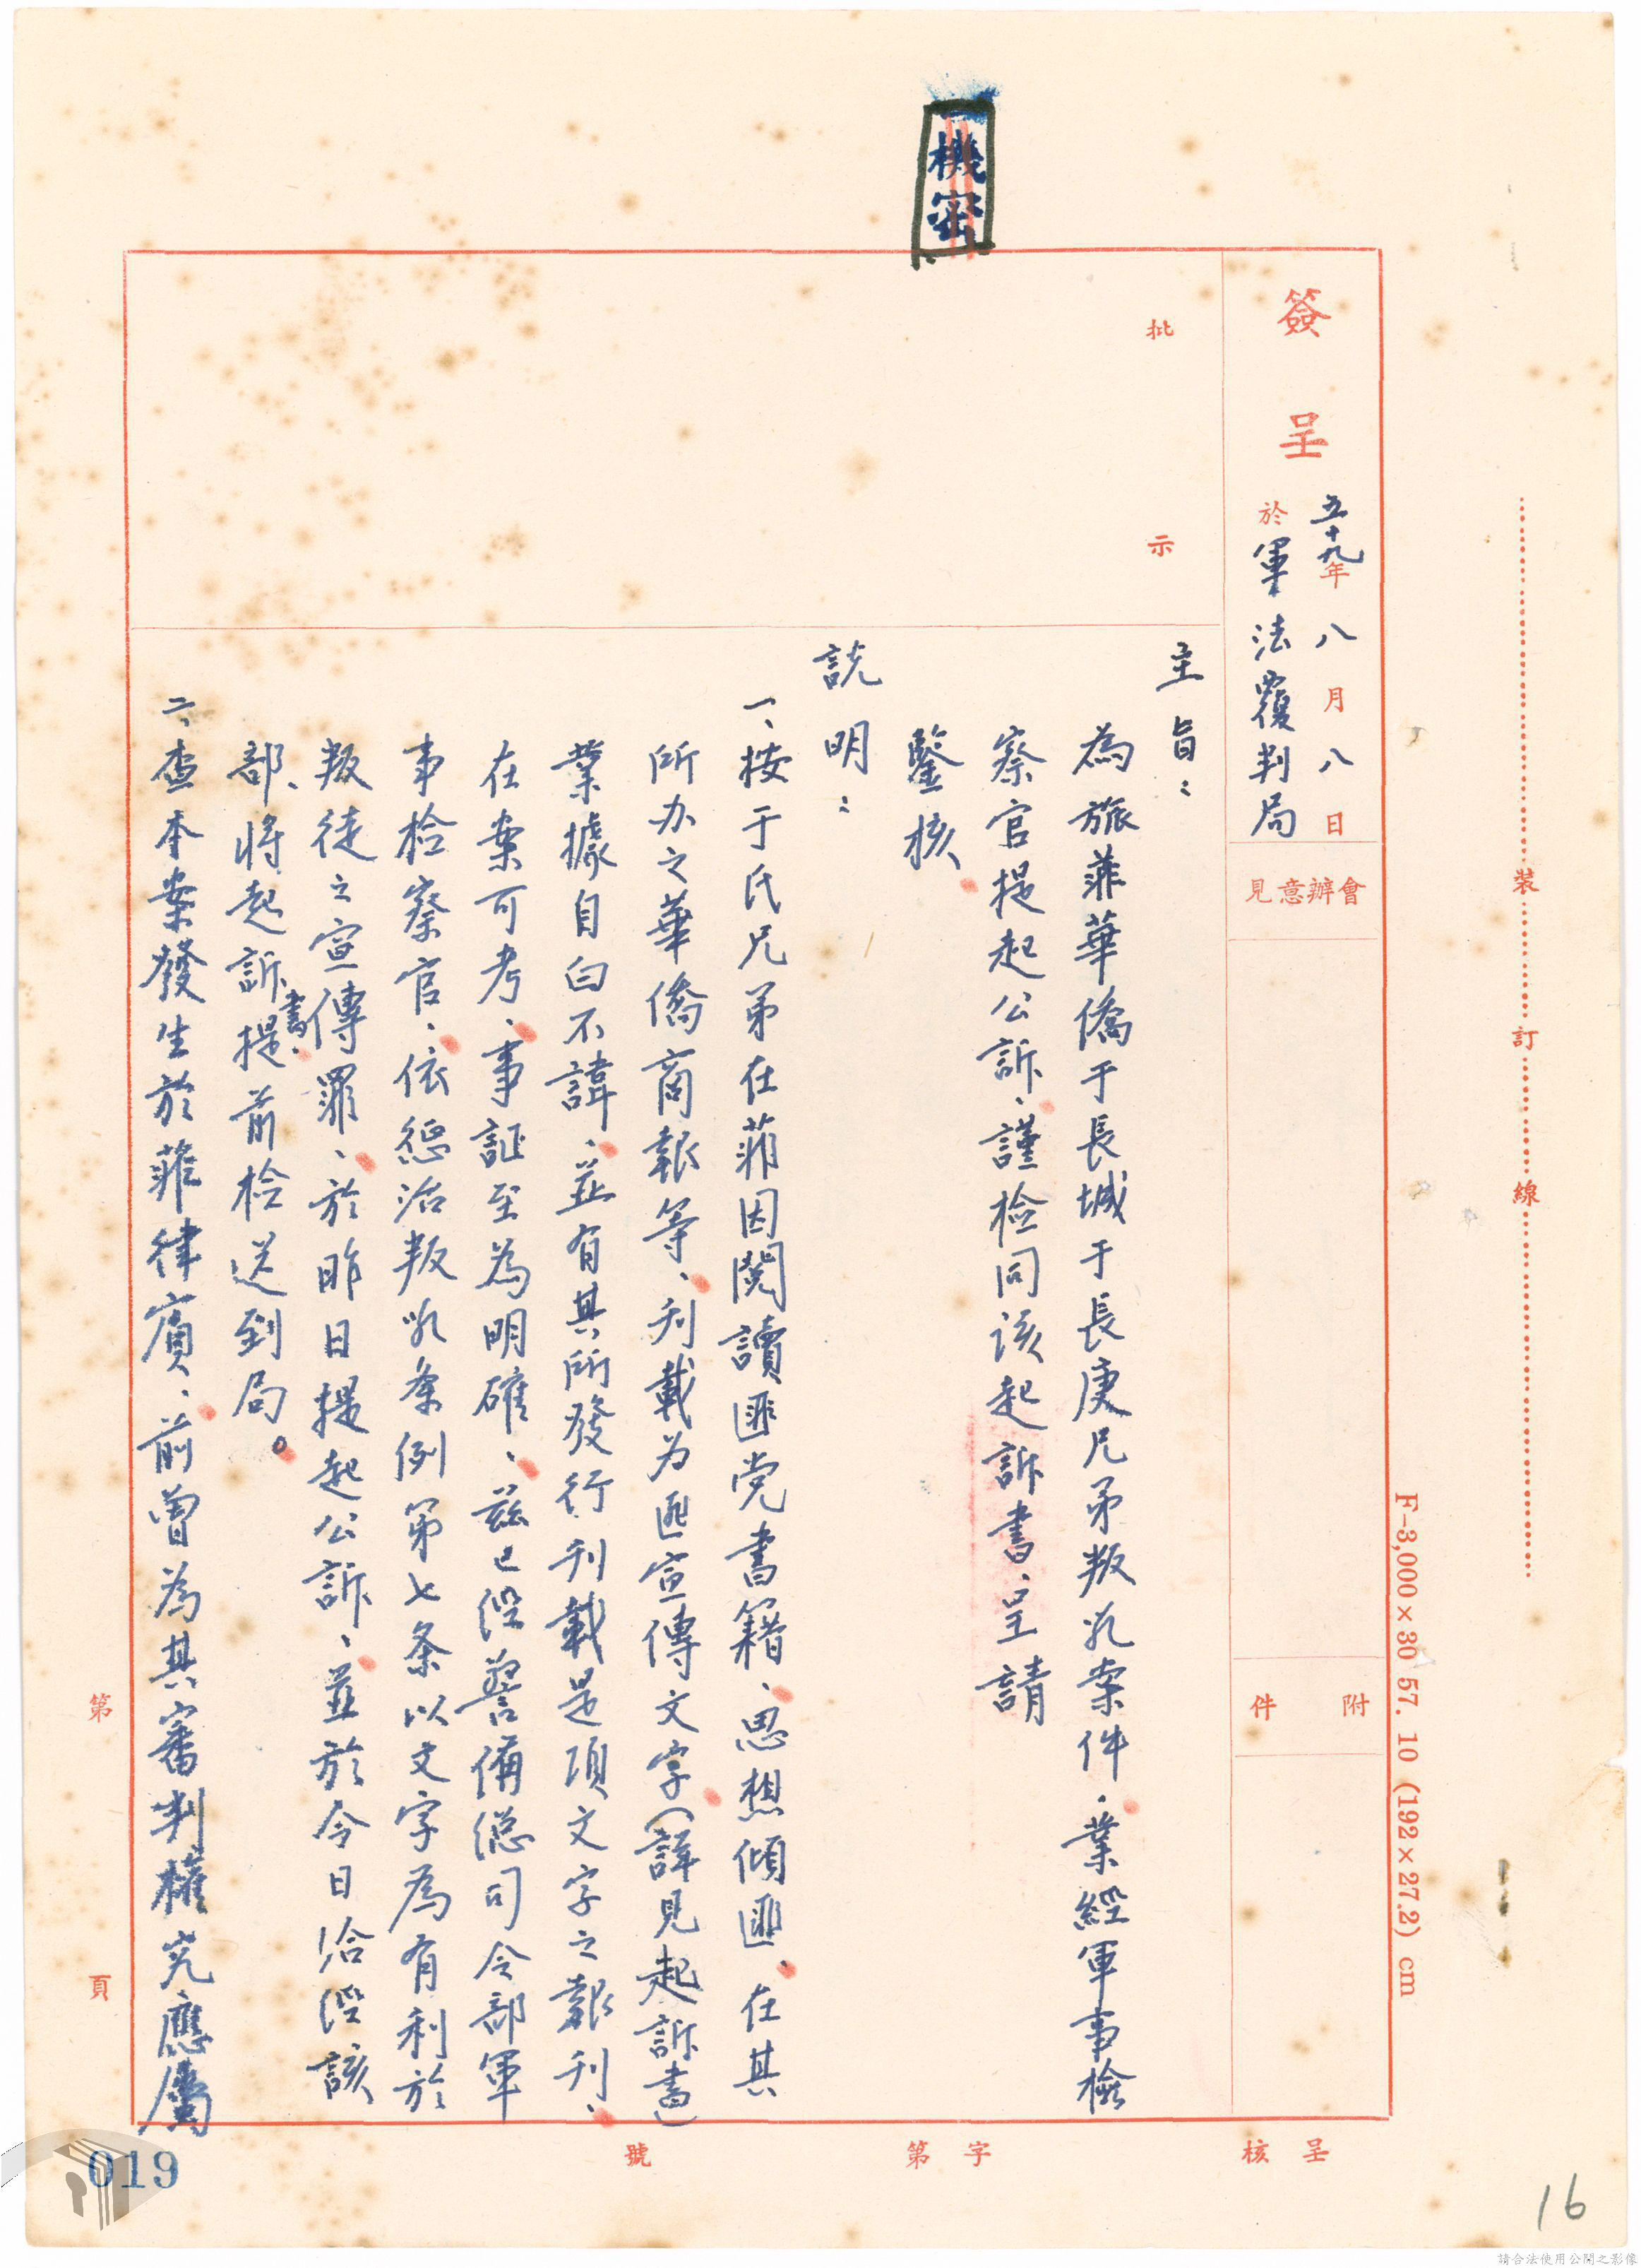 機密
簽呈
五十九年八月八日
於軍法覆判局
會辦意見
附件
批示
主旨：
為旅菲華僑于長城于長庚兄弟叛乱案件、業經軍事檢
察官提起公訴、謹檢同该起訴書、呈請
鑒核、
説明：
一、按于氏兄弟在菲因閱讀匪党書籍、思想傾匪、在其
所办之華僑商報等、刋載为匪宣傳文字（詳見起訴書）
業據自白不諱、並有其所發行刋載是項文字之報刋、
在案可考、事証至為明確、茲已經警備總司令部軍
事检察官、依懲治叛乱条例第七条以文字為有利於
叛徒之宣傳罪、於昨日提起公訴、並於今日洽經該
部、將起訴書、提前检送到局。
二、查本案發生於菲律賓、前曾為其審判權究應屬
裝訂線
F-3,000×30 57. 10 (192×27.2) cm
第 頁
呈核
字第 號
019
16
請合法使用公開之影像